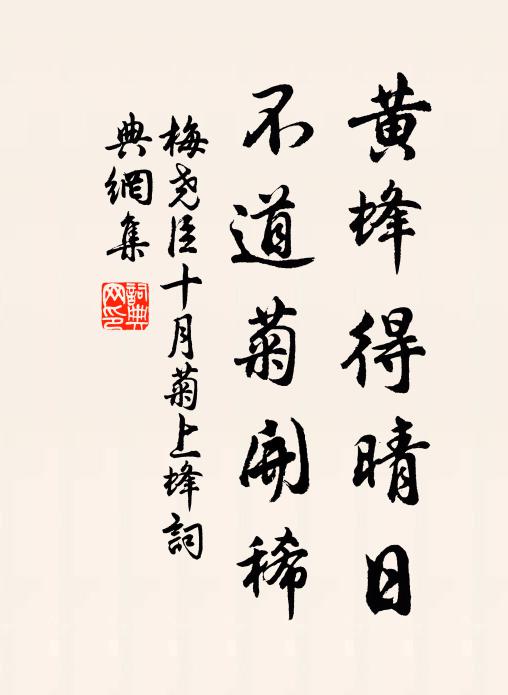 黄蜂得晴日
不道菊開稀
梅堯臣十月菊上蜂詞
典網集
詞典
网印